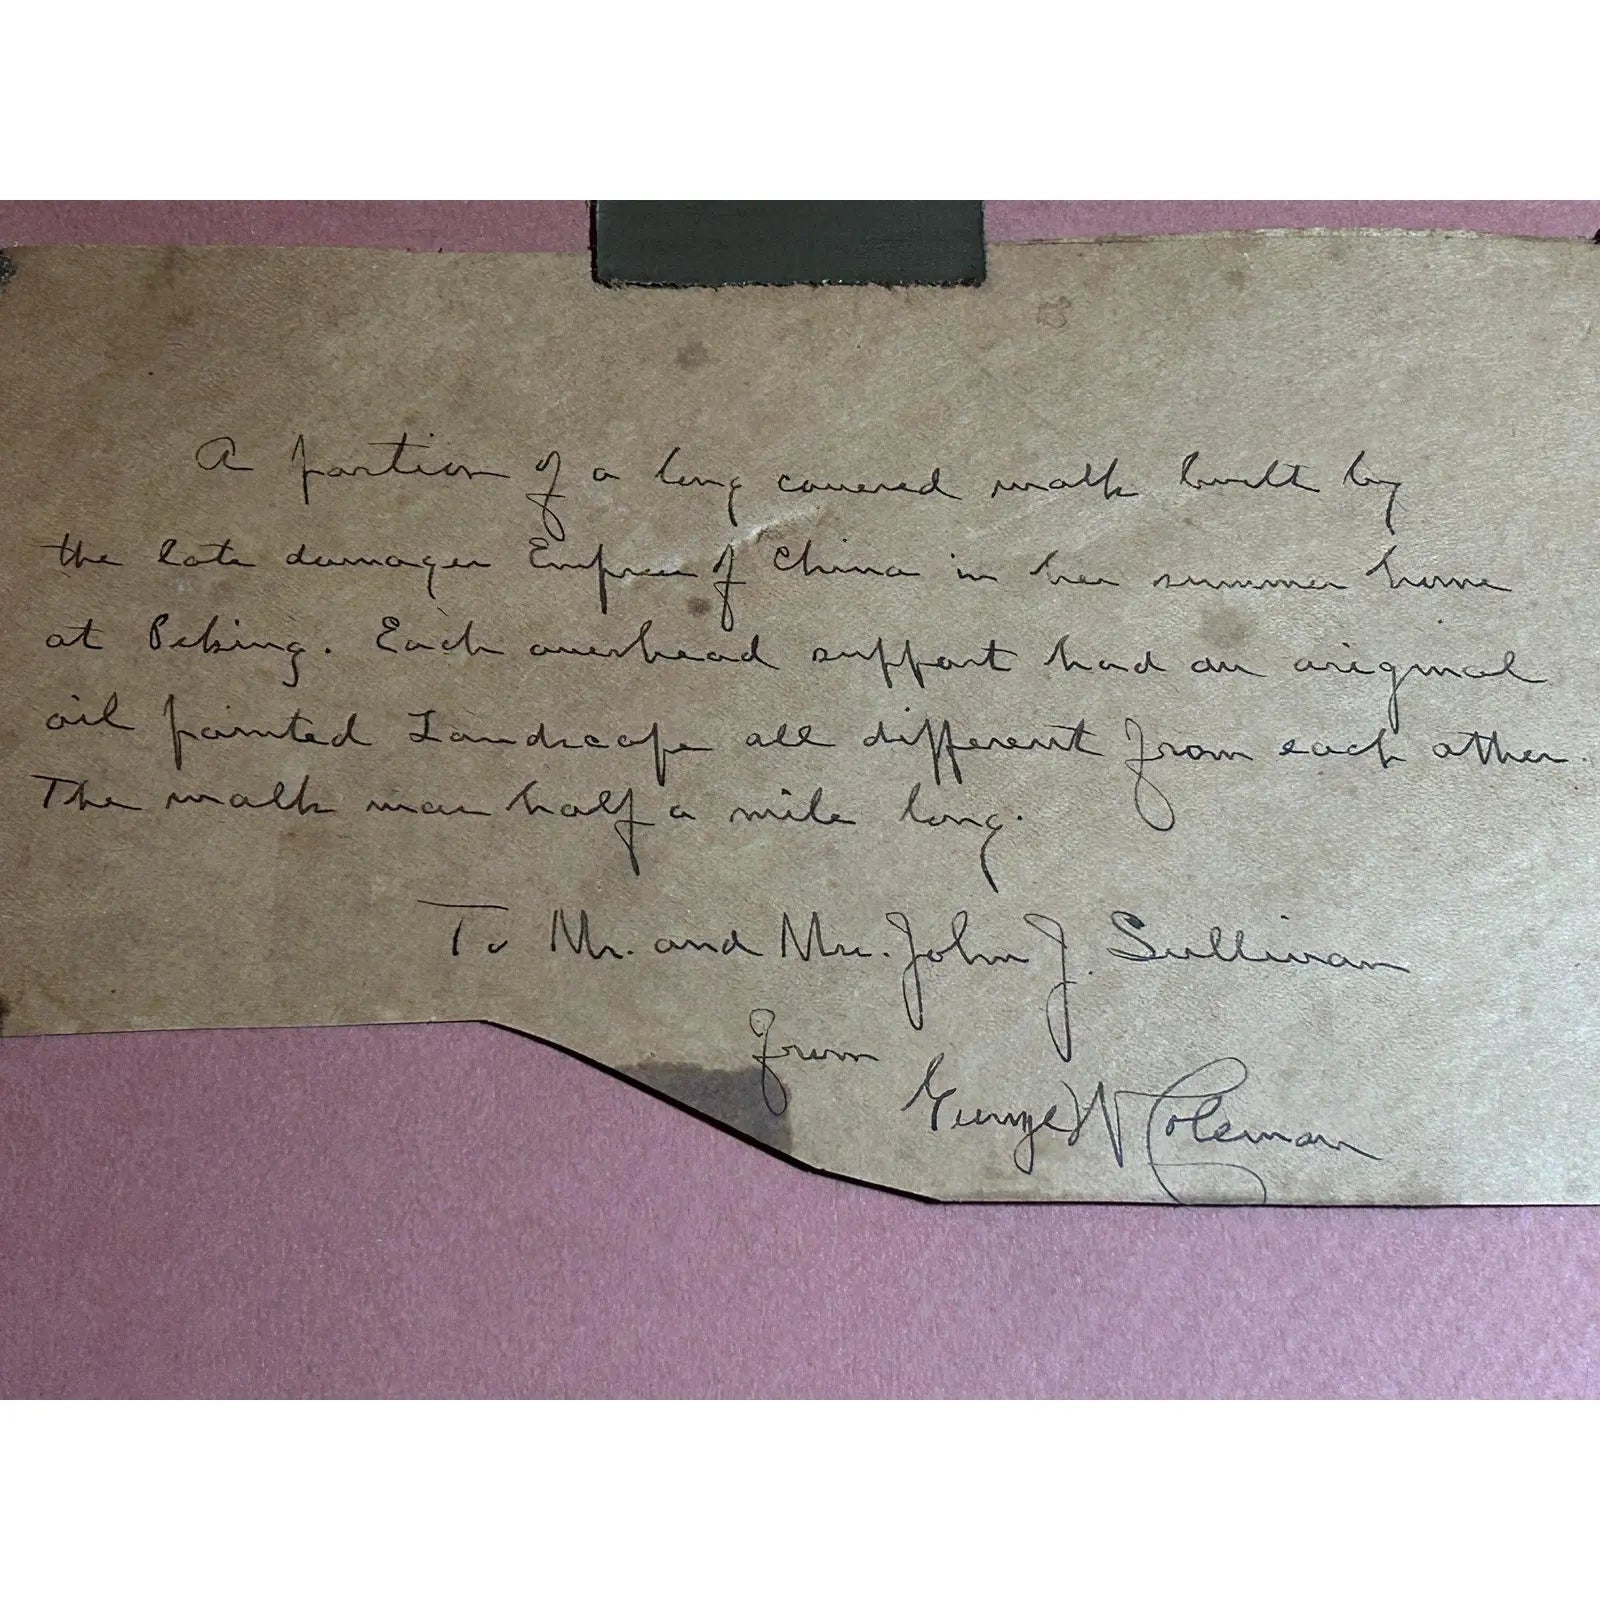 A portion of a long covered walk built by
the late dowager Empress of China in her summer home
at Peking. Each overhead support had an original
oil painted Landscape all different from each other.
The walk was half a mile long.
To Mr. and Mrs. John J. Sullivan
from
George W Coleman